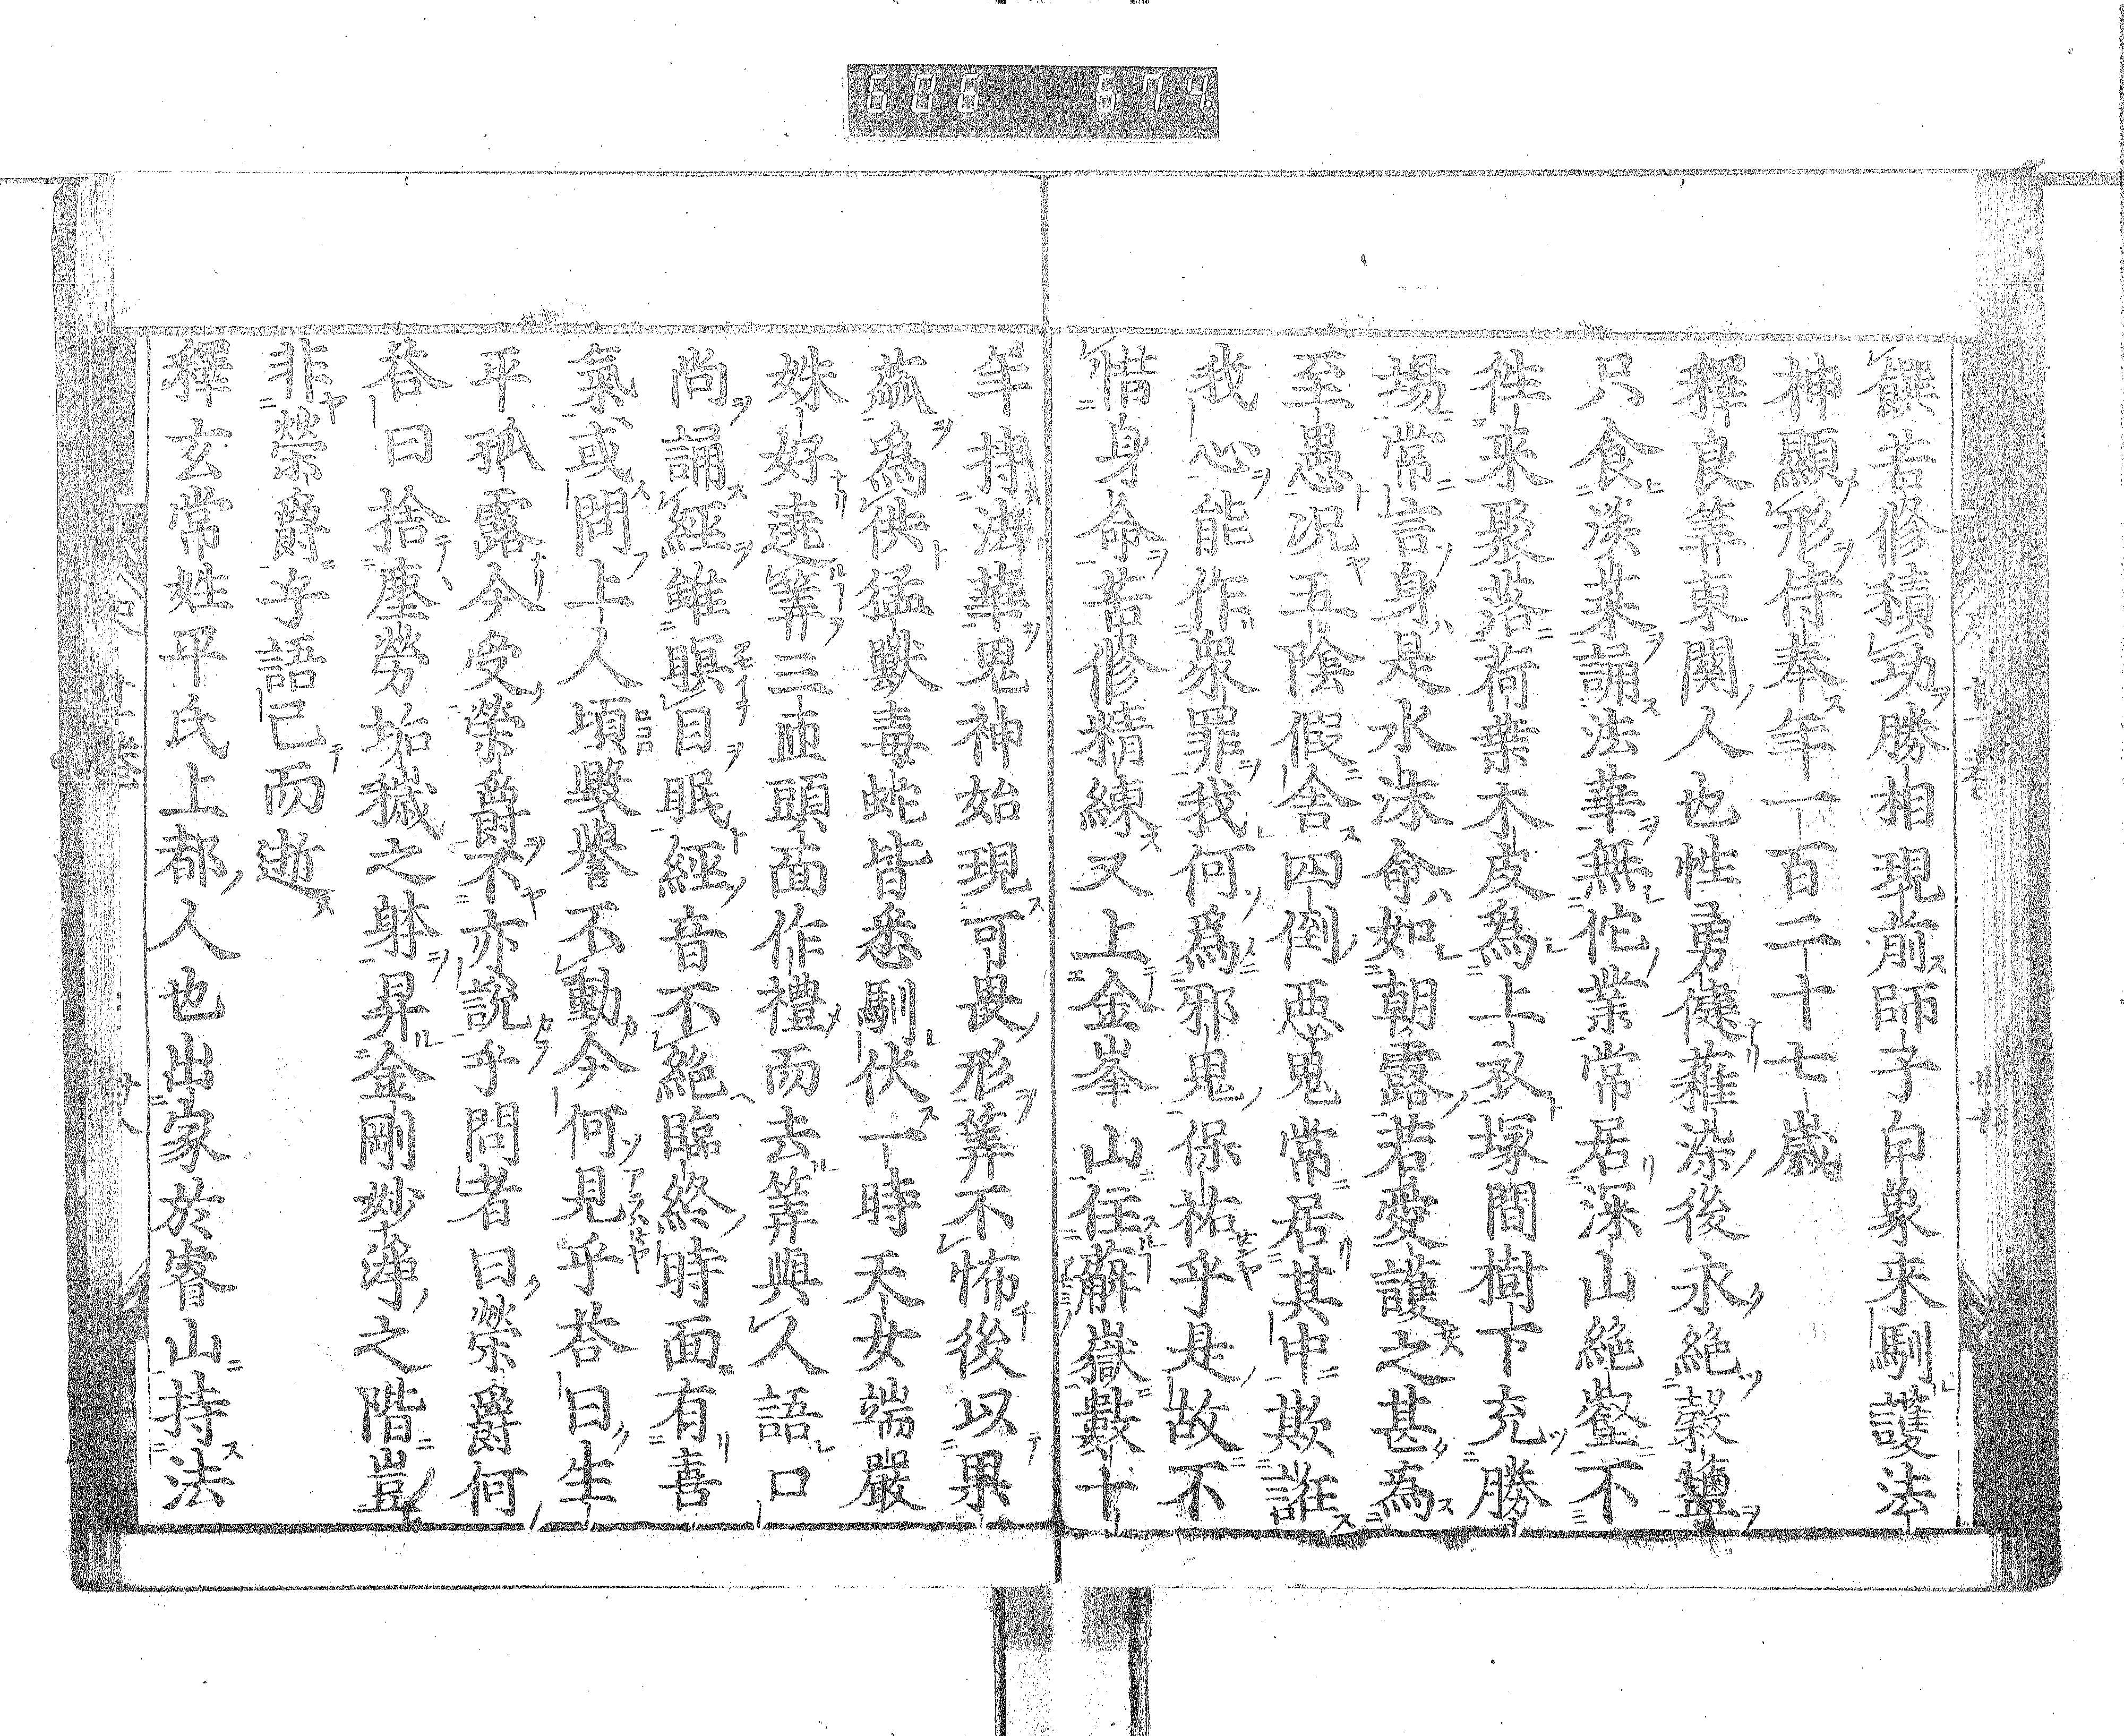 606 674
饌若修積功勝相現前師子白象来馴護法
神顯形侍奉年一百二十七歳
釋良筭東関人也性勇健薙染後永絶穀鹽
只食淡菜誦法華無佗業常居深山絶壑不
徃来聚落荷葉木皮為上衣塚間樹下充勝
場常言身是水沫命如朝露若愛護之甚為
至愚况五陰假舍四倒悪鬼常居其中欺誑
我心能作衆罪我何爲邪鬼保祐乎是故不
惜身命苦修精練又上金峯山住薢嶽數十
年持法華鬼神始現可畏形筭不怖後以果
蓏為供猛獸毒蛇皆悉馴伏一時天女端嚴
姝好遶筭三匝頭面作禮而去筭與人語口
尚誦經雖瞑目眠經音不絶臨終時面有喜
氣或問上人頃毀譽不動今何見乎荅曰生
平孤露今受榮爵不亦説乎問者曰榮爵何
荅曰捨塵勞垢穢之躰昇金剛妙淨之階豈
非榮爵乎語已而逝
釋玄常姓平氏上都人也出家於睿山持法